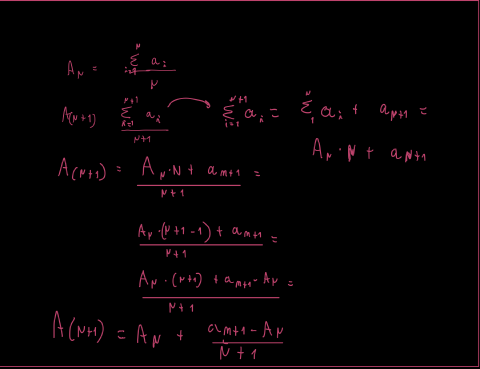 A_N = \frac{\sum_{i=1}^{N} a_i}{N}
A_{(N+1)} \frac{\sum_{i=1}^{N+1} a_i}{N+1} → \sum_{i=1}^{N+1} a_i = \sum_{1}^{N} a_i + a_{N+1} =
A_N · N + a_{N+1}
A_{(N+1)} = \frac{A_N · N + a_{m+1}}{N+1} =
\frac{A_N · (N+1-1) + a_{m+1}}{N+1} =
\frac{A_N · (N+1) + a_{m+1} - A_N}{N+1} =
A_{(N+1)} = A_N + \frac{a_{m+1} - A_N}{N+1}